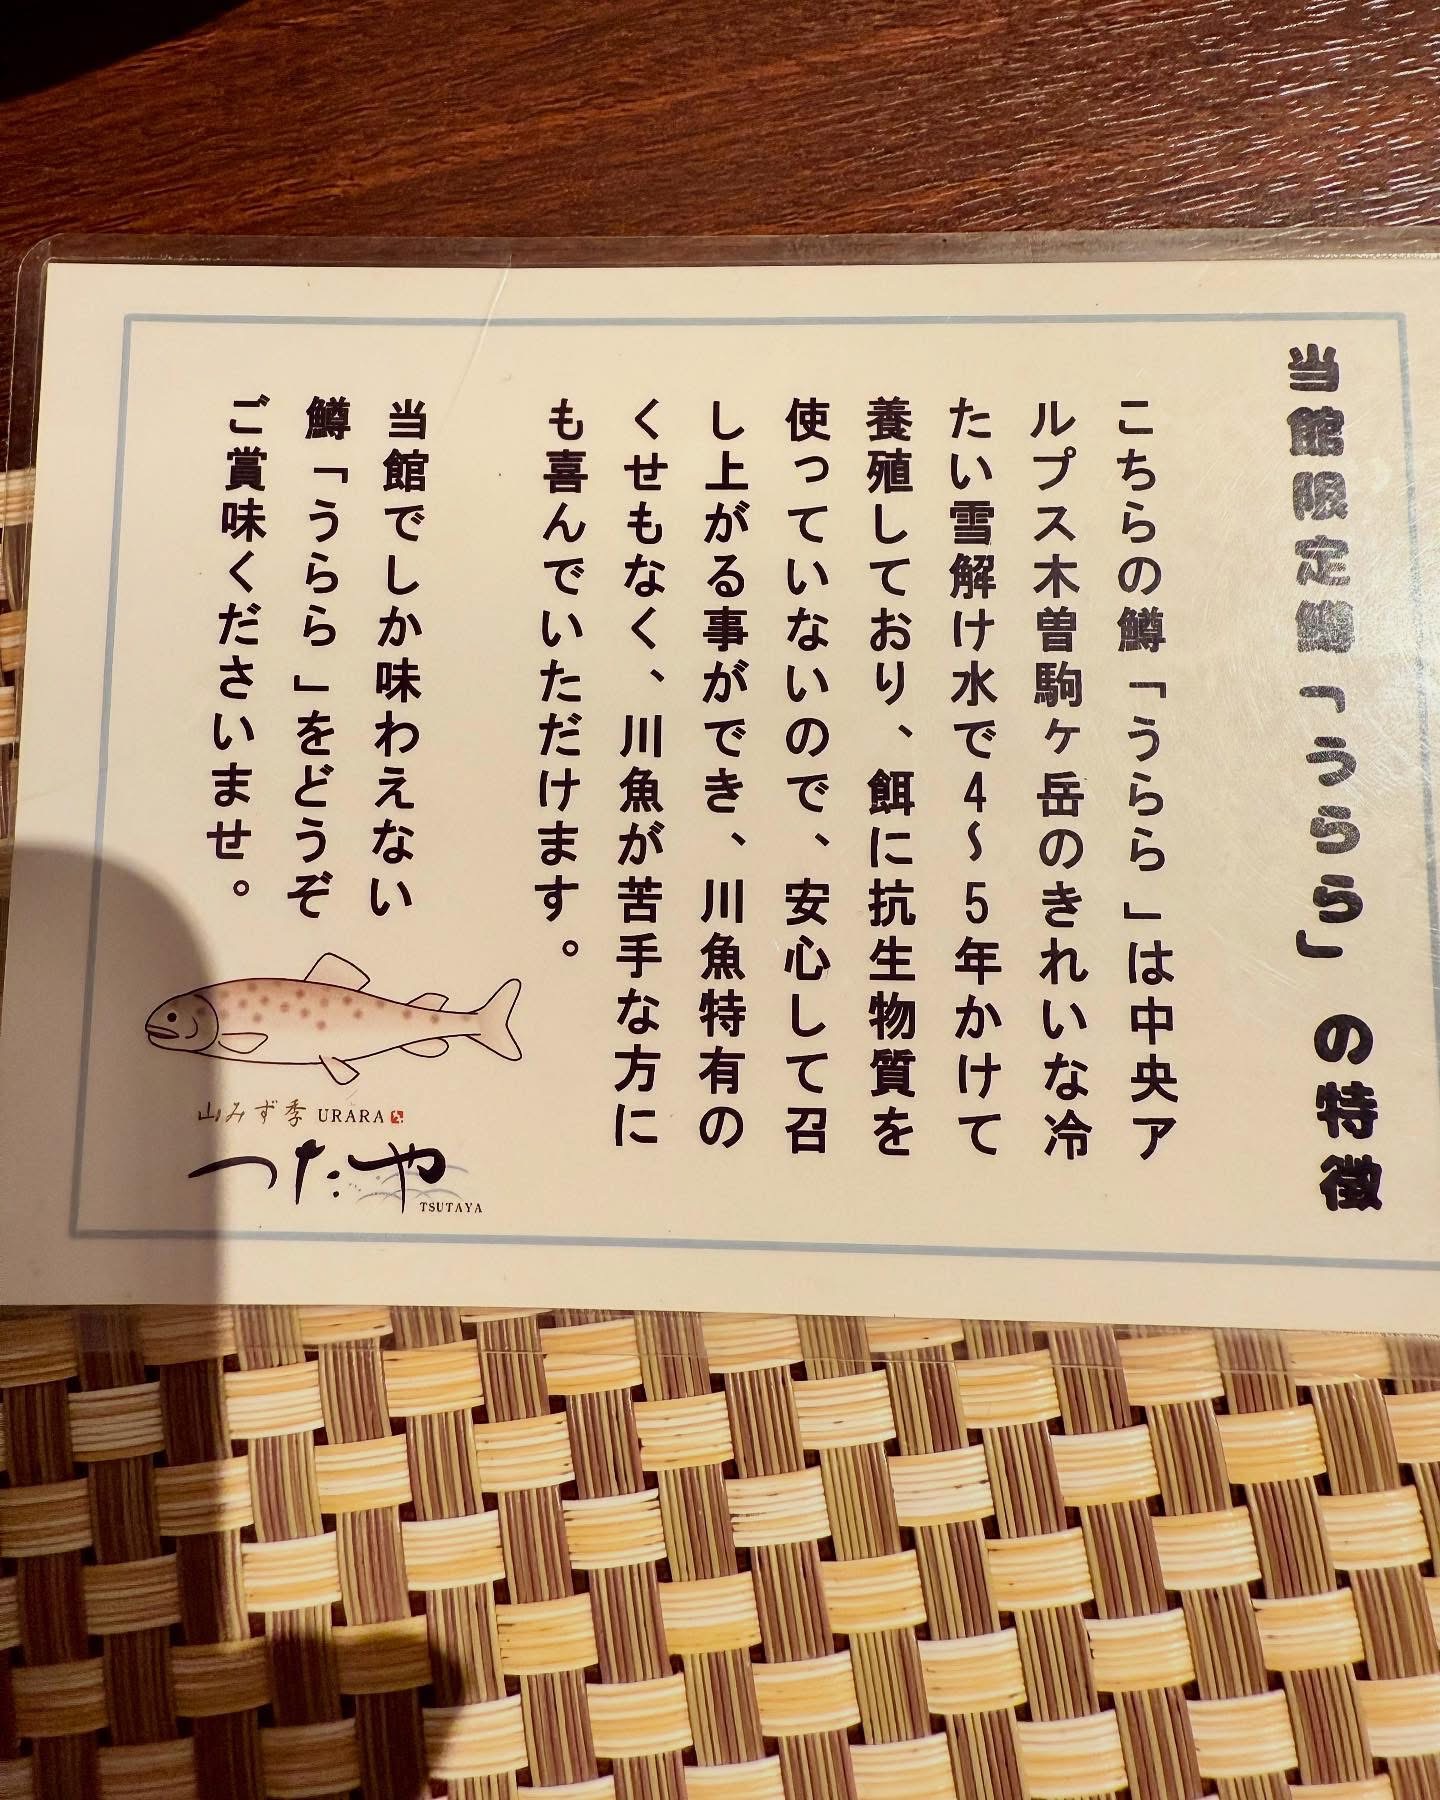 当館限定鱒「うらら」の特徴
こちらの鱒「うらら」は中央ア
ルプス木曽駒ヶ岳のきれいな冷
たい雪解け水で4～5年かけて
養殖しており、餌に抗生物質を
使っていないので、安心して召
し上がる事ができ、川魚特有の
くせもなく、川魚が苦手な方に
も喜んでいただけます。
当館でしか味わえない
鱒「うらら」をどうぞ
ご賞味くださいませ。
山みず季 URARA
つたや
TSUTAYA